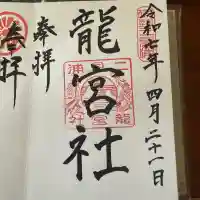 令和七年四月二十一日
龍宮社
奉拝
奉拝